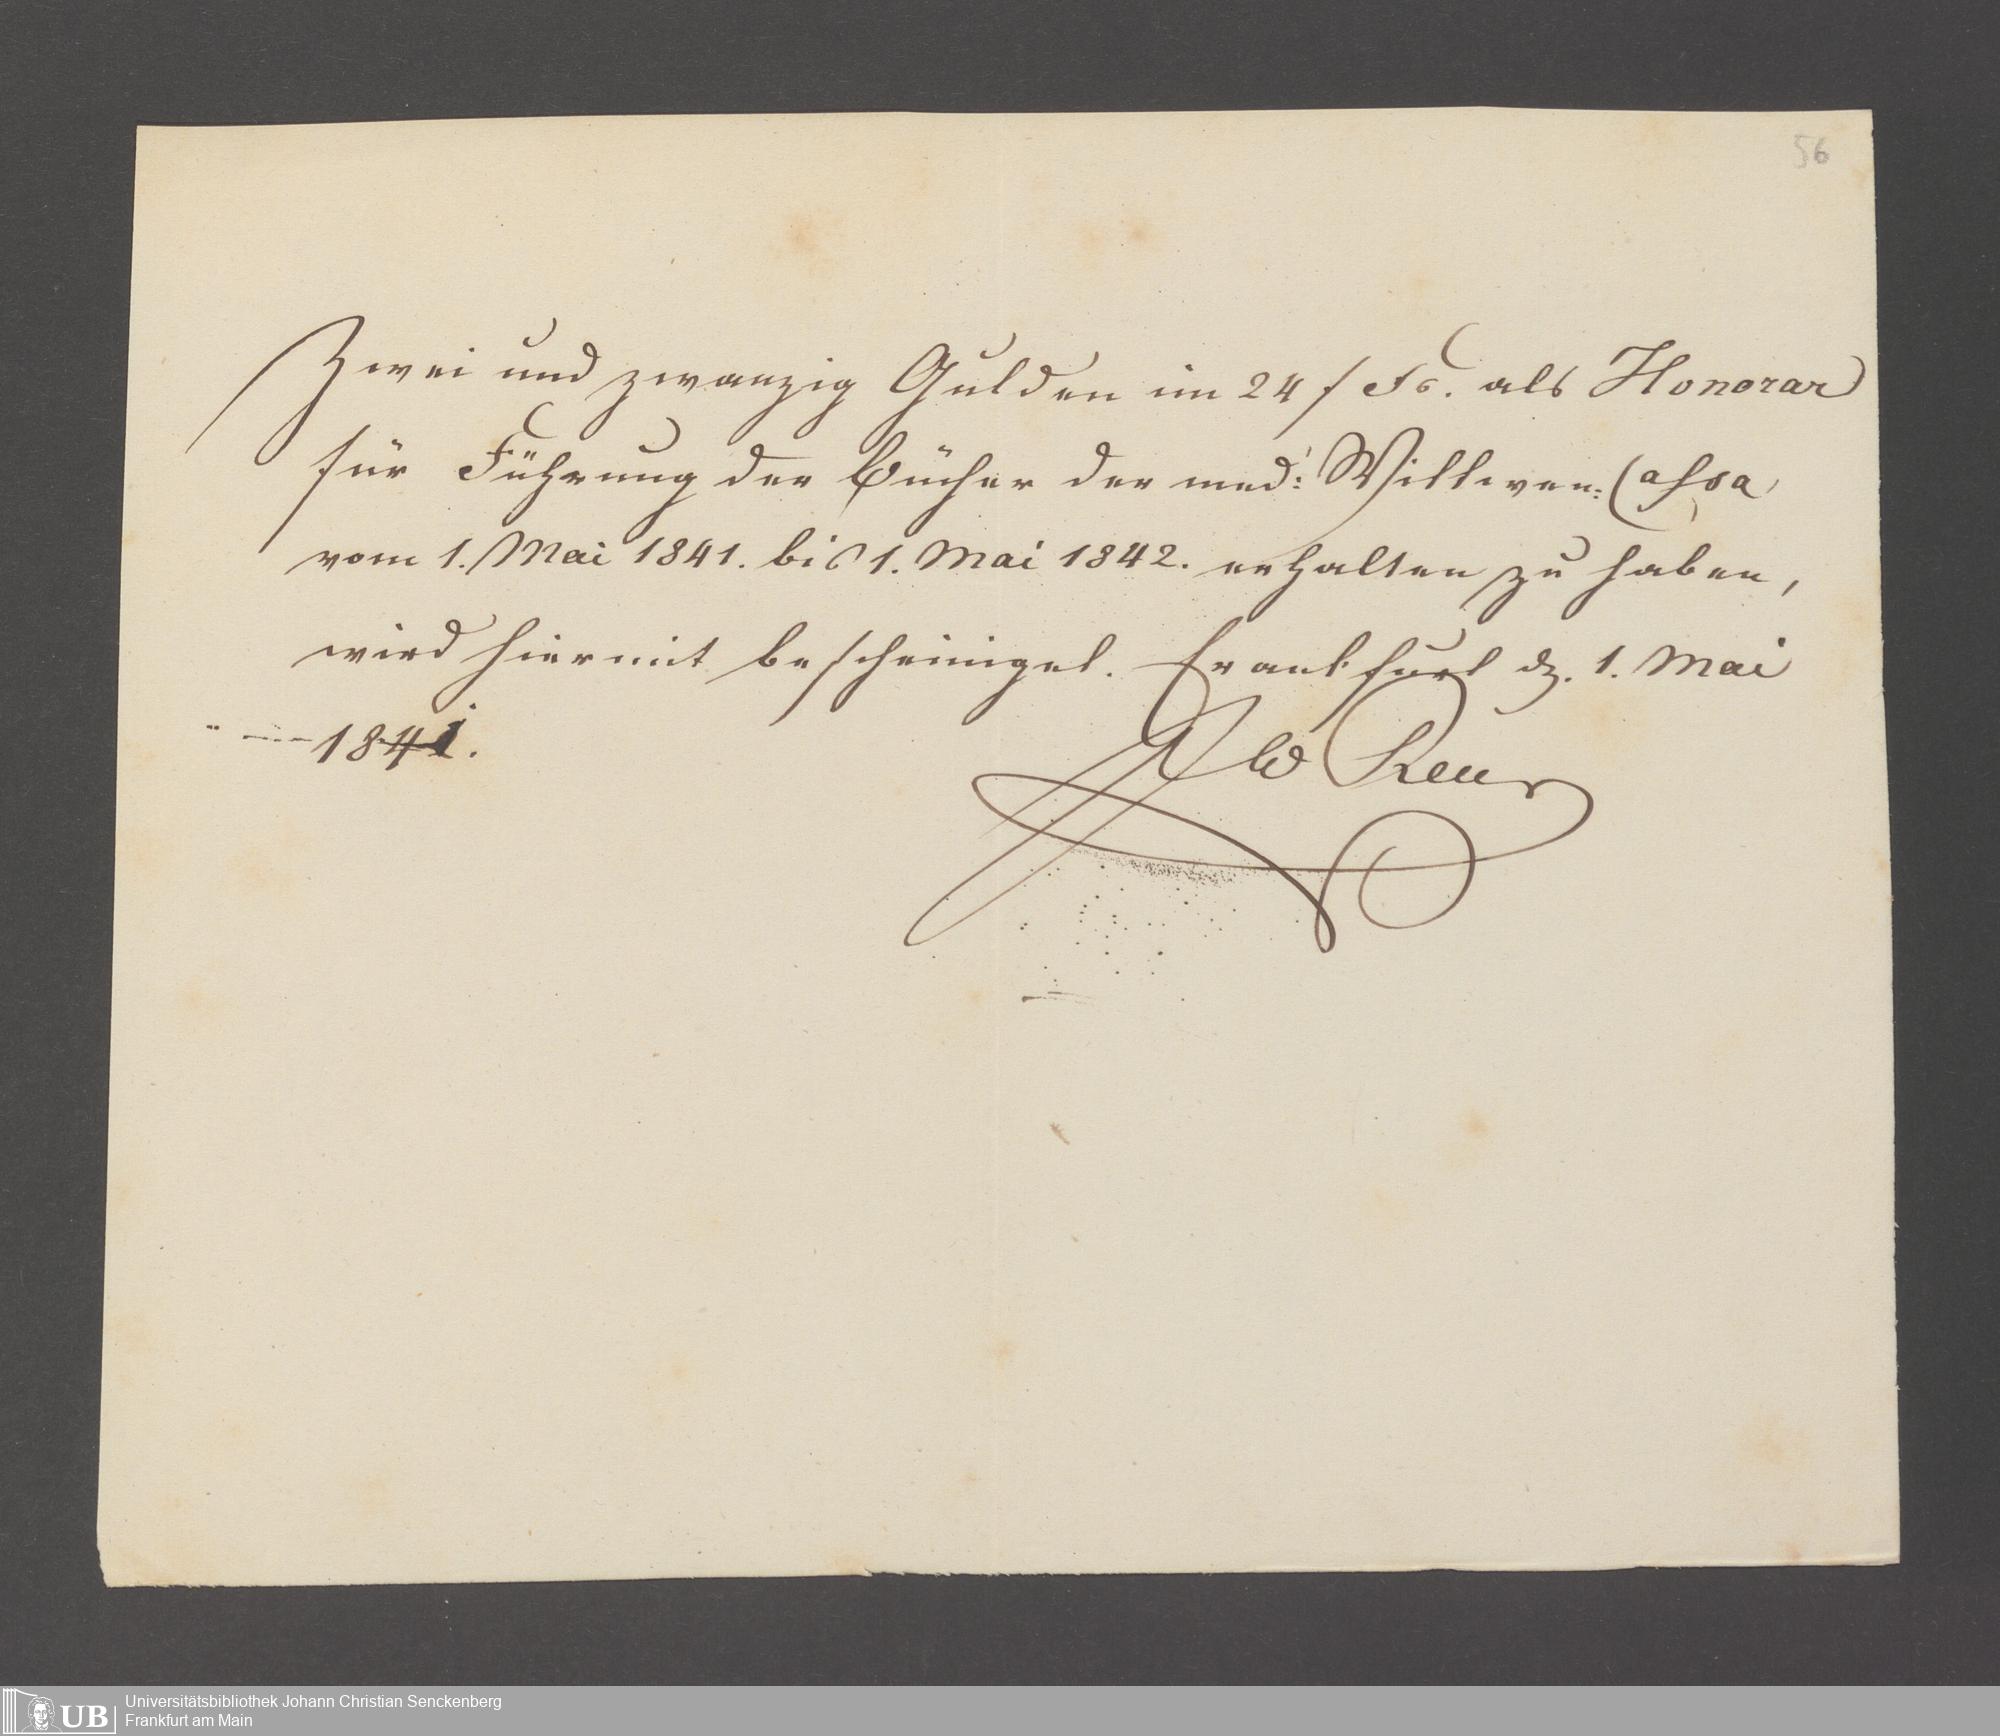 56
Zwei und zwanzig Gulden im 24 f Fs. als Honorar
für Führung der Bücher der med: Wittwen: Cassa
vom 1. Mai 1841. bis 1. Mai 1842. erhalten zu haben,
wird hiermit bescheinigt. Frankfurt d. 1. Mai
1841.
UB
Universitätsbibliothek Johann Christian Senckenberg
Frankfurt am Main